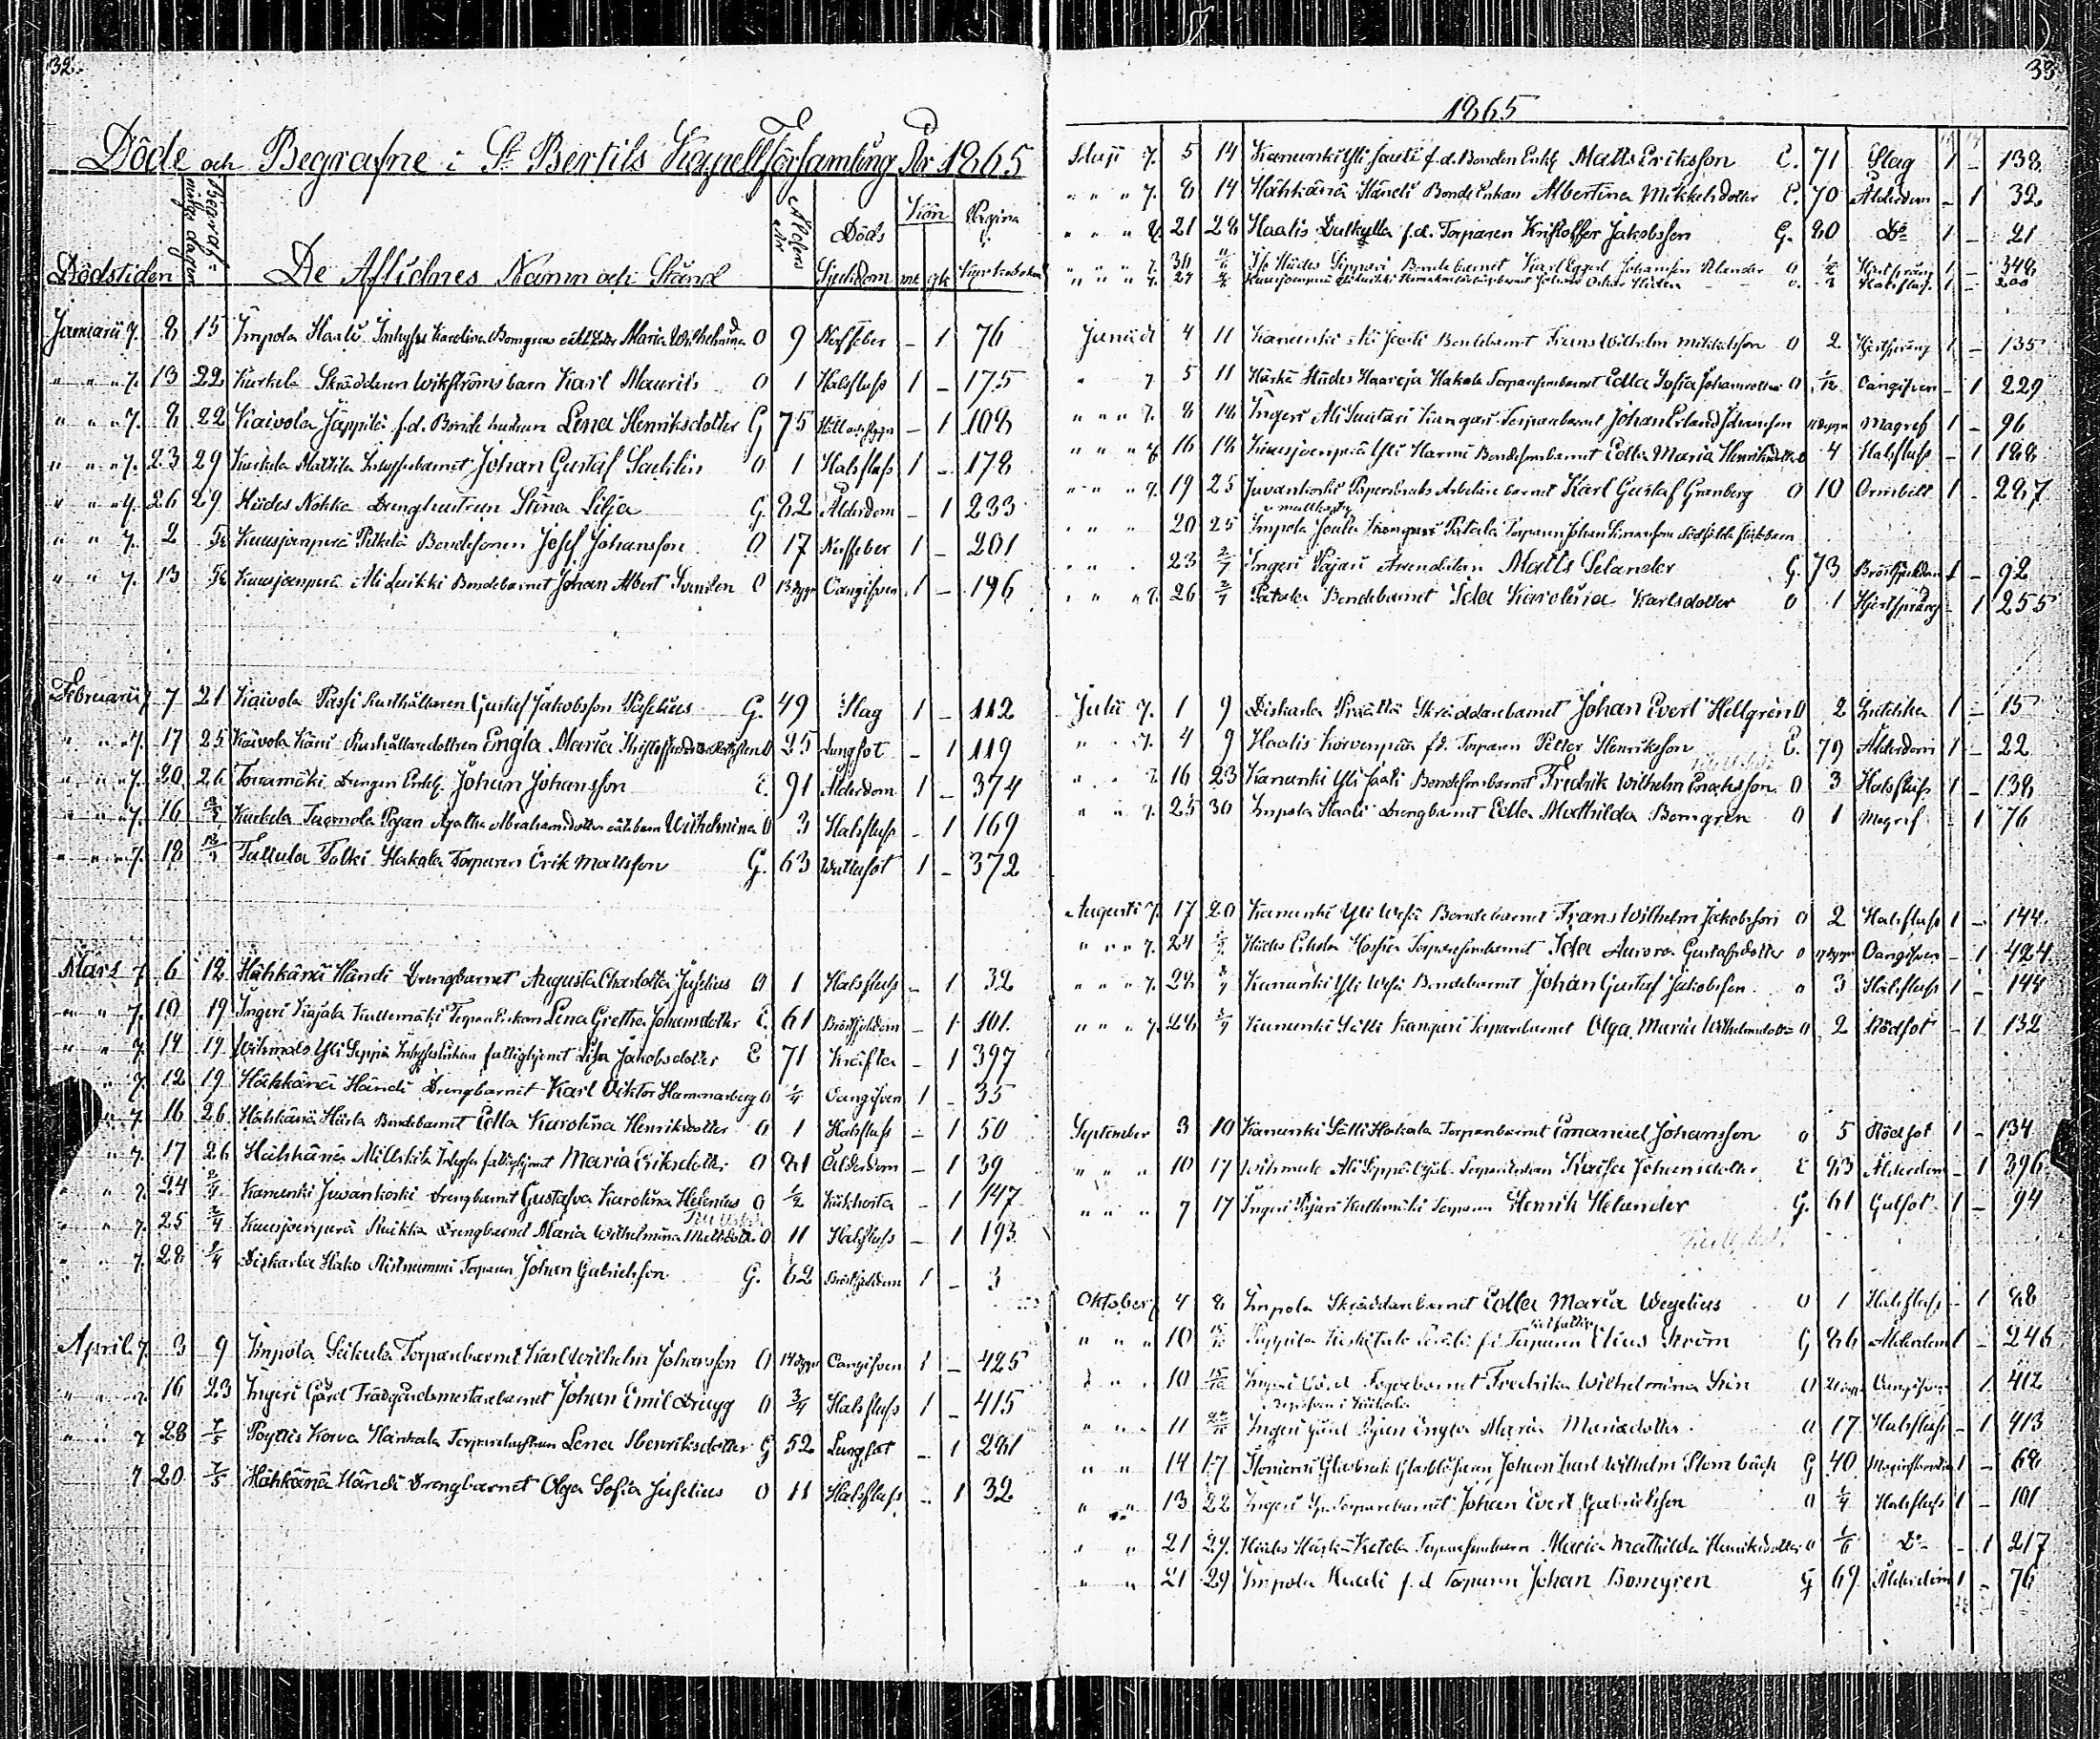 32.
Döde och Begrafne i St Bertils Kapellförsamling År 1865
Dödstiden Begraf= nings dagen De Aflidnes Namn och Stånd Ålders År Döds Sjukdom Kön mk qk Pagina i Kyrkoboken
Januarii 7. 8 15 Impola Haali Inhyses Karolina Bomgrens oäkta dotter Maria Wilhelmina O 9 Nerffeber – 1 76
" " " 7. 13 22 Kurkela Skräddaren Wikströms barn Karl Maurits O 1 Halsfluss 1 – 175
" " " 7. 8 22 Kaivola Jäppilä f.d. Bonde hustrun Lena Henriksdotter G 75 – 1 108
" " " 7. 23 29 Kurkela Mattila Inhysesbarnet Johan Gustaf Saehlin O 1 Halsfluss 1 – 178
" " " 7. 26 29 Hiides Nokka Drenghustrun Stina Lilja G. 82 Ålderdom – 1 233
" " 7. 2 5/2 Kuusjoenperä Pitkälä Bondesonen Josef Johansson O 17 Nerffeber 1 – 201
" " 7. 13 5/2 Kuusjoenperä Ali Luikki Bondebarnet Johan Albert O 13 dygn Oangifven 1 – 196
Februarii 7 7 21 Kaivola Passi Rusthållaren Gustaf Jakobsson G. 49 Slag 1 – 112
" " " 7. 17 25 Kaivola Rusthållaredottren Engla Maria O 25 Lungsot – 1 119
" " " 7. 20 26 Torramäki Drengen Enkl. Johan Johansson E. 91 Ålderdom 1 – 374
" " " 7. 16 Kurkela Tuomola Pigan Agatha Abrahamsdotters oäkta barn Wilhelmina O 3 Halsfluss – 1 169
" " " 7. 18 Tuiula Tolki Hakala Torparen Erik Mattsson G. 63 Wattusot 1 – 372
Mars 7 6 12 Hähkänä Händi Drengbarnet Augusta Charlotta Juselius O 1 Halsfluss – 1 32
" " 7. 10 19 Ingeri Kajala Kullemäki Torpare Enkan Lena Gretha Johansdotter E. 61 Bröstsjukdom – 1 101.
" " 7 14 19 Wihmalo Yli Seppä Inhyses Enkan fattighjonet Lisa Jakobsdotter E 71 Kräfta – 1 397
7 12 19 Hähkänä Händi Drengbarnet Karl Viktor Hammarberg O 1/4 Oangifven 1 – 35
" 7 16 26 Hähkänä Härla Bondebarnet Edla Karolina Henriksdotter O 1 Halsfluss – 1 50
" 7. 17 26 Hähkänä Inhyses fattighjonet Maria Eriksdotter O 81 Ålderdom – 1 39
" " 7 24 2/4 Kanunki Juvankoski Drengbarnet Gustafva Karolina Helenius O 1/2 Kikhosta – 1 147
" " 7. 25 2/4 Kuusjoenperä Drengbarnet Maria Wilhelmina O 11 Halsfluss – 1 193
" " 7. 28 9/4 Diskarla Hako Ristnummi Torparen Johan Gabrielsson G. 62 Bröstsjukdom 1 – 3
April 7. 3 9 Impola Seikula Torparebarnet Karl Wilhelm Johansson O 14 dygn Oangifven 1 – 425
" " " 7. 16 23 Ingeri Gård Trädgårdsmästarebarnet Johan Emil Drugg O 3/4 Halsfluss 1 – 415
" " " 7 28 7/5 Pöytiis Kova Hankala Torparehustrun Lena Henriksdotter G 52 Lungsot – 1 281
" 7 20 7/5 Hähkänä Händi Drengbarnet Olga Sofia Juselius O 11 Halsfluss – 1 32
33
1865
Maji 7. 5 14 Kanunki Yli Jaati f.d. Bonden Enkl Matts Eriksson E. 71 Slag 1 – 138
" " " 7. 8 14 Hähkänä Händi Bonde Enkan Albertina Mikkelsdotter E. 70 Ålderdom – 1 32
" " " 7. 21 28 Haalis f.d. Torparen Kristoffer Jakobsson G. 80 Do 1 – 21
" " " 7. 30 Hiides Seppäri Bondebarnet Karl Eggert Johansson O 1/2 1 – 348
" " " 7. 27 Kuusjoenperä Johan Oskar O. Halsfluss 1 – 200
Junii d 4 11 Kanunki Ali Jaati Bondebarnet Frans Wilhelm Mikkelsson O 2 1 – 135
" 7 5 11 Härkä Hiides Haaroja Hakala Torparesonbarnet Edla Sofia Johansdotter O 1/12 Oangifven – 1 229
" " " 7. 8 18 Ingeri Ali Suutari Kangari Torparebarnet Johan Erland Johansson Magref 1 – 96
" " " 7. 16 18 Kuusjoenperä Yli Harmi Bondesonbarnet Edla Maria Henriksdotter 4 Halsfluss – 1 188
" " " 7. 19 25 Juvankoski Pappersbruks Arbetare barnet Karl Gustaf Granberg O 10 Ormbett 1 – 297
" " " 20 25 Impola Jouko Kangari Patala Torparen Johan Simonssons dödfödda flickbarn
" " " 23 2/7 Ingeri Pajari Arrendatorn Matts Selander G. 73 Bröstsjukdom 1 – 92
" " " 7. 26 2/7 Patala Bondebarnet Ida Karolina Karlsdotter O 1 – 1 255
Julii 7. 1 9 Diskarla Präätlä Skräddarebarnet Johan Evert Hellgren O 2 1 – 15
" " " 7. 4 9 Haalis Korvenpää f.d. Torparen Petter Henriksson E. 79 Ålderdom 1 – 22
" " 7. 16 23 Kanunki Yli Jaati Bondesonbarnet Fredrik Wilhelm O 3 Halsfluss 1 – 138
" " 7. 25 30 Impola Haali Drengbarnet Edla Mathilda Bomgren O 1 Magref – 1 76
Augusti 7. 17 20 Kanunki Yli Wesä Bondebarnet Frans Wilhelm Jakobsson O 2 Halsfluss 1 – 144.
" " " 7. 24 Hiides Eskola Torparesonbarnet Ida Aurora Gustafsdotter O Oangifven – 1 424.
" " " 7. 28 3/9 Kanunki Yli Wesä Bondebarnet Johan Gustaf Jakobsson O 3 Halsfluss 1 – 144
" " " 7. 28 3/9 Kanunki Sälli Kangari Torparebarnet Olga Maria Wilhelmsdotter O 2 Rödsot – 1 132
September 3 10 Kanunki Sälli Hakala Torparebarnet Emanuel Johansson O 5 Rödsot 1 – 134
" " " 10 17 Wihmalo Ali Seppä Torpare Enkan Kaisa Johansdotter E 83 Ålderdom – 1 396
" " " 7 17 Ingeri Pajari Kullamäki Torparen Henrik Helander G. 61 Gulsot 1 – 94
Oktober 7 4 8 Impola Skräddarebarnet Edla Maria Wegelius O 1 Halsfluss – 1 88
" " " 10 15/10 f.d. Torparen Elias Ström G 86 Ålderdom 1 – 246
" " " 10 15/10 Ingeri Gård Fogdebarnet Fredrika Wilhelmina O Oangifven – 1 412
" " " 11 22/10 Ingeri Gård Pigan Engla Maria Mariadotter O 17 Halsfluss – 1 413
" " 14 17 Glasbruk Glasblåsaren Johan Karl Wilhelm G 40 1 – 68
" " 13 22 Ingeri Torparebarnet Johan Evert Gabrielsson O 1/4 Halsfluss 1 – 101
" " 21 29 Hiides Härkä Ketola Torparesonbarn Maria Mathilda Henriksdotter O 1/6 Do – 1 217
" " 21 29 Impola Haali f.d. Torparen Johan Bomgren G 69 Ålderdom 1 – 76